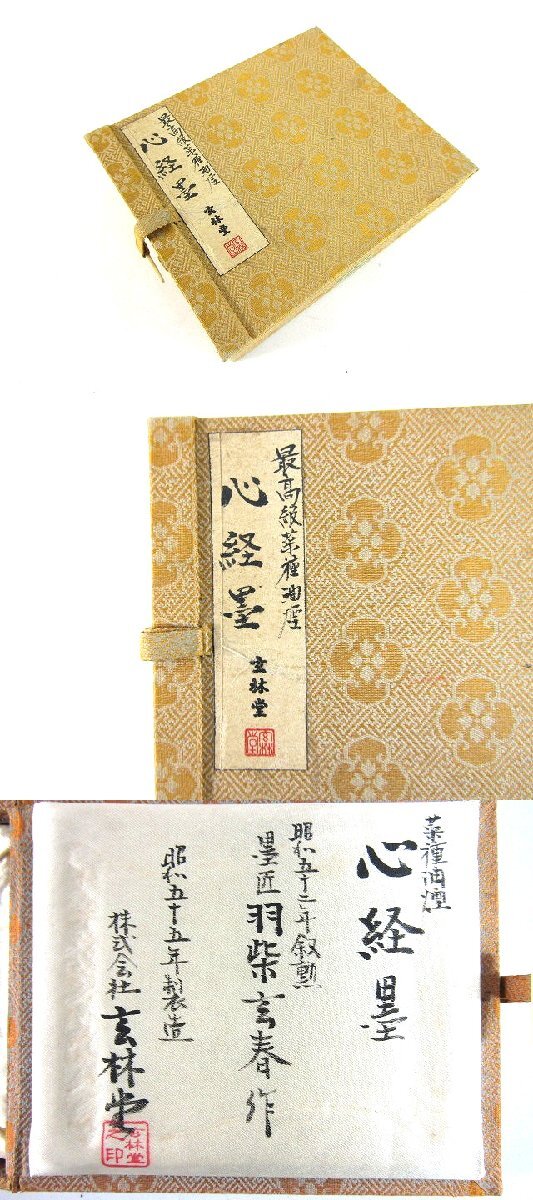 最高級菜種油煙
心経墨
玄林堂
最高級菜種油煙
心経墨
玄林堂
菜種油煙
心経墨
昭和五十二年叙勲
墨匠 羽柴玄春作
昭和五十五年製造
株式会社 玄林堂
玄林堂之印